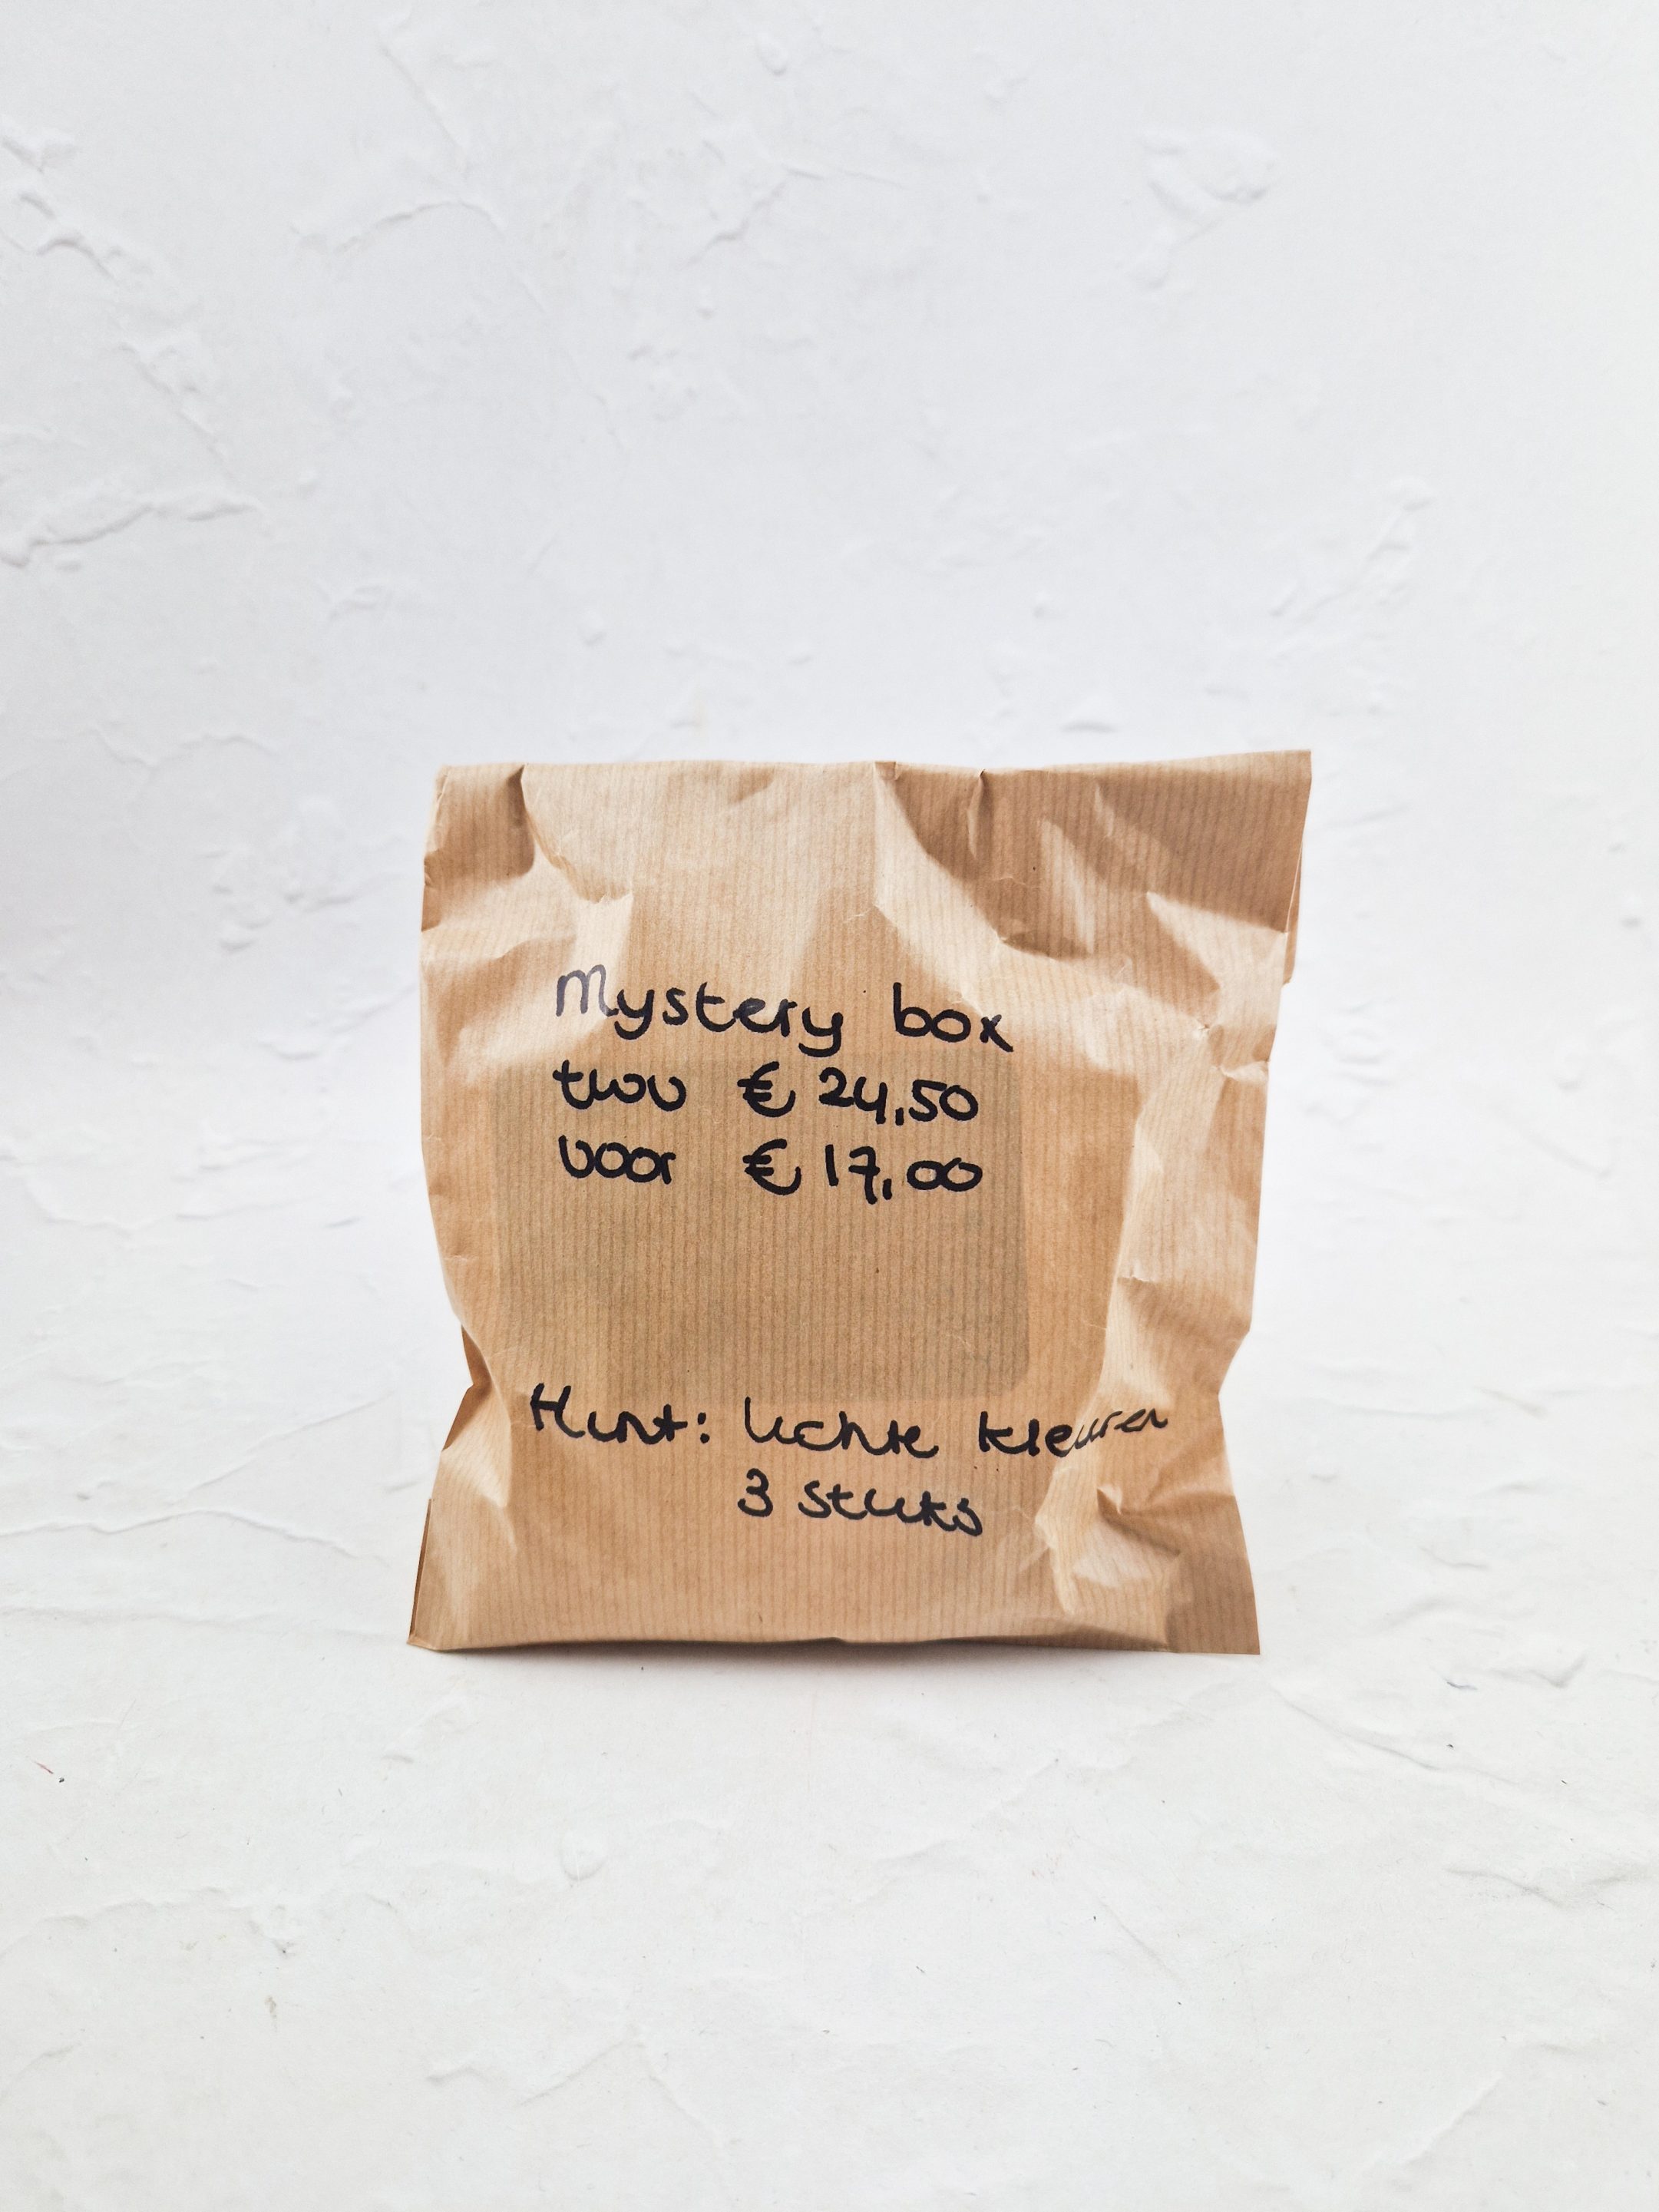 Mystery box
twv € 24,50
voor € 17,00
Hint: lichte kleuren
3 stuks